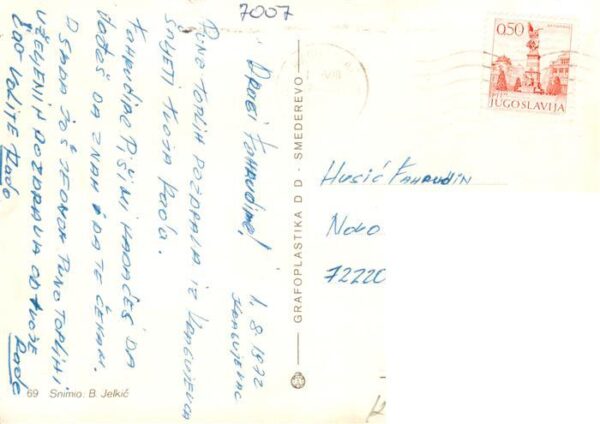 7007
0,50
JUGOSLAVIJA
DRAGI FAHRUDINE!
1. 8. 1972
KRAGUJEVAC
PUNO TOPLIH POZDRAVA IZ KRAGUJEVCA
ŠALJETI TVOJA Rada.
FAHRUDINE PIŠI MI KADA ĆEŠ DA
DOĐEŠ DA ZNAM I DA TE ČEKAM.
D SADA JOŠ JEDNOM PUNO TOPLIH I
UŽELJENIH POZDRAVA OD TVOJE
Rade
GRAFOPLASTIKA D D - SMEDEREVO
Husić FAHRUDIN
NOVO
72220
69 Snimio: B. Jelkić